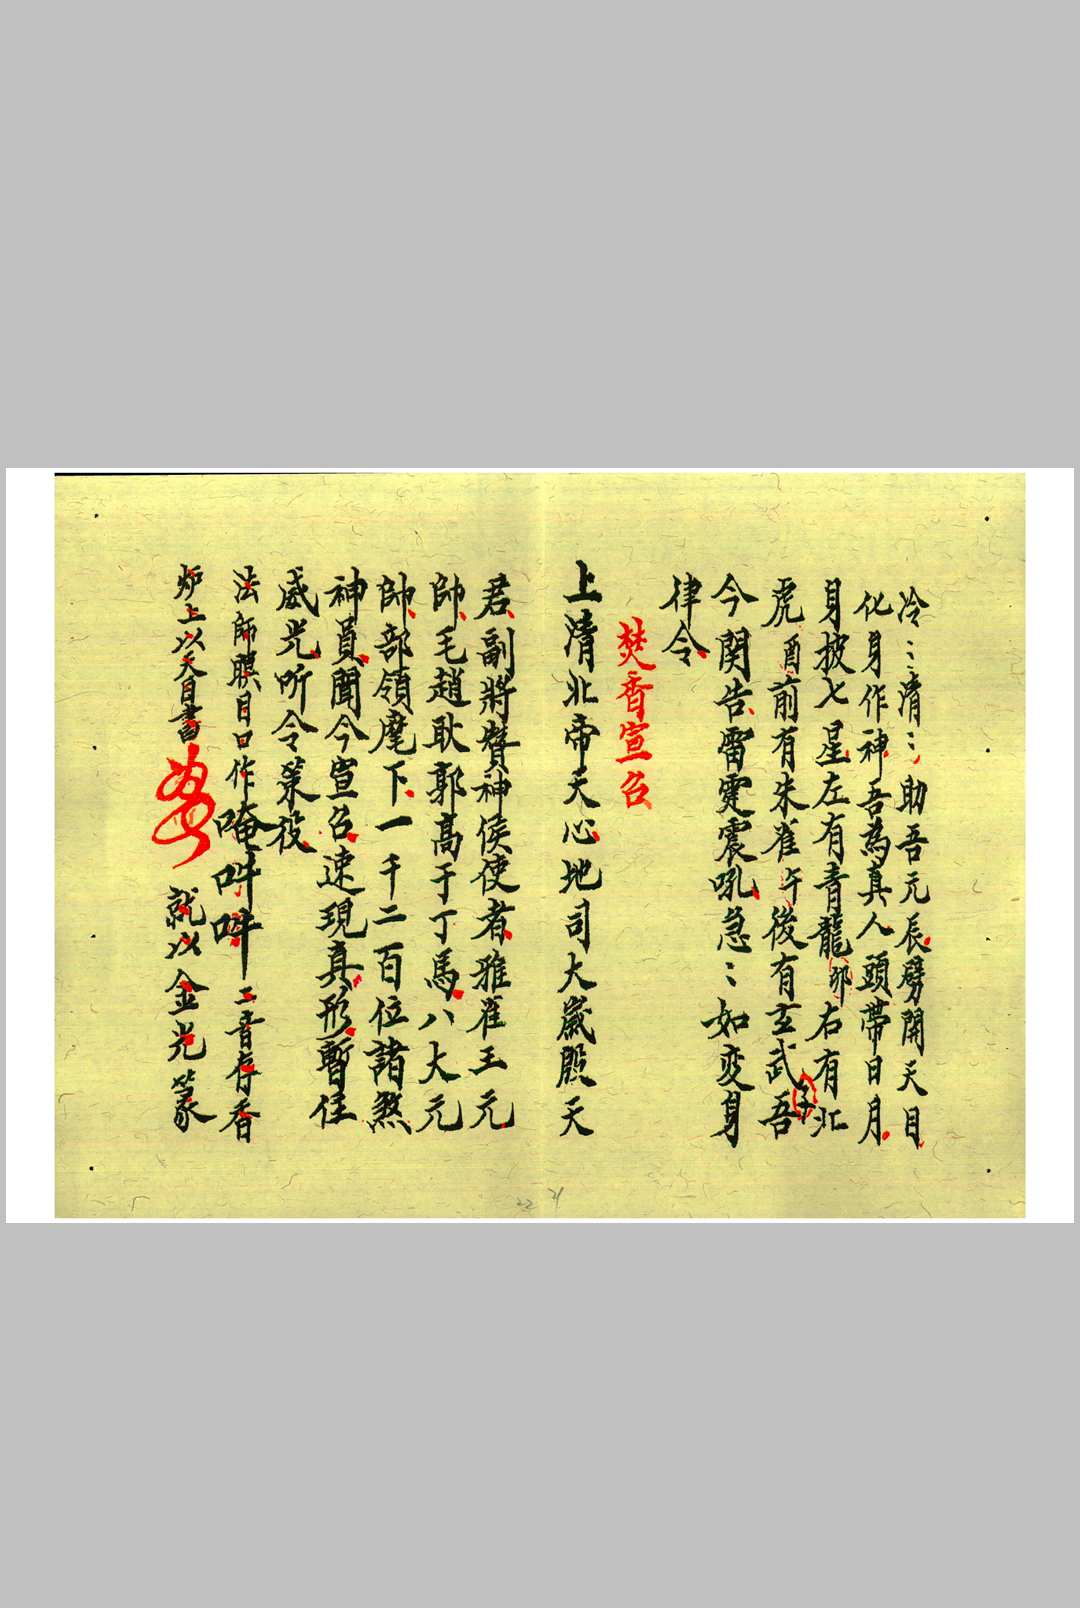 冷〻清〻助吾元辰劈開天目
化身作神吾為真人頭帶日月
身披七星左有青龍卯右有北
虎酉前有朱雀午後有玄武子吾
今関告雷霆震吼急〻如変身
律令
焚香宣召
上清北帝天心地司大歲殷天
君副將贊神侯使者雅雀王元
帥毛趙耿郭高于丁馬八大元
帥部領麾下一千二百位諸煞
神員聞今宣召速現真形暫住
威光听令策役
法師瞑目口作唵吽吽二音存香
炉上以天目書 就以金光篆
21
22